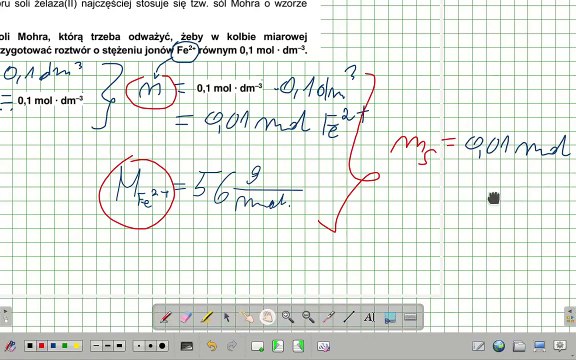 oru soli żelaza(II) najczęściej stosuje się tzw. sól Mohra o wzorze
oli Mohra, którą trzeba odważyć, żeby w kolbie miarowej
zygotować roztwór o stężeniu jonów Fe²⁺ równym 0,1 mol · dm⁻³.
0,1 dm³
= 0,1 mol · dm⁻³
n = 0,1 mol · dm⁻³ · 0,1 dm³
= 0,01 mol Fe²⁺
M Fe²⁺ = 56 g/mol.
= 0,01 mol